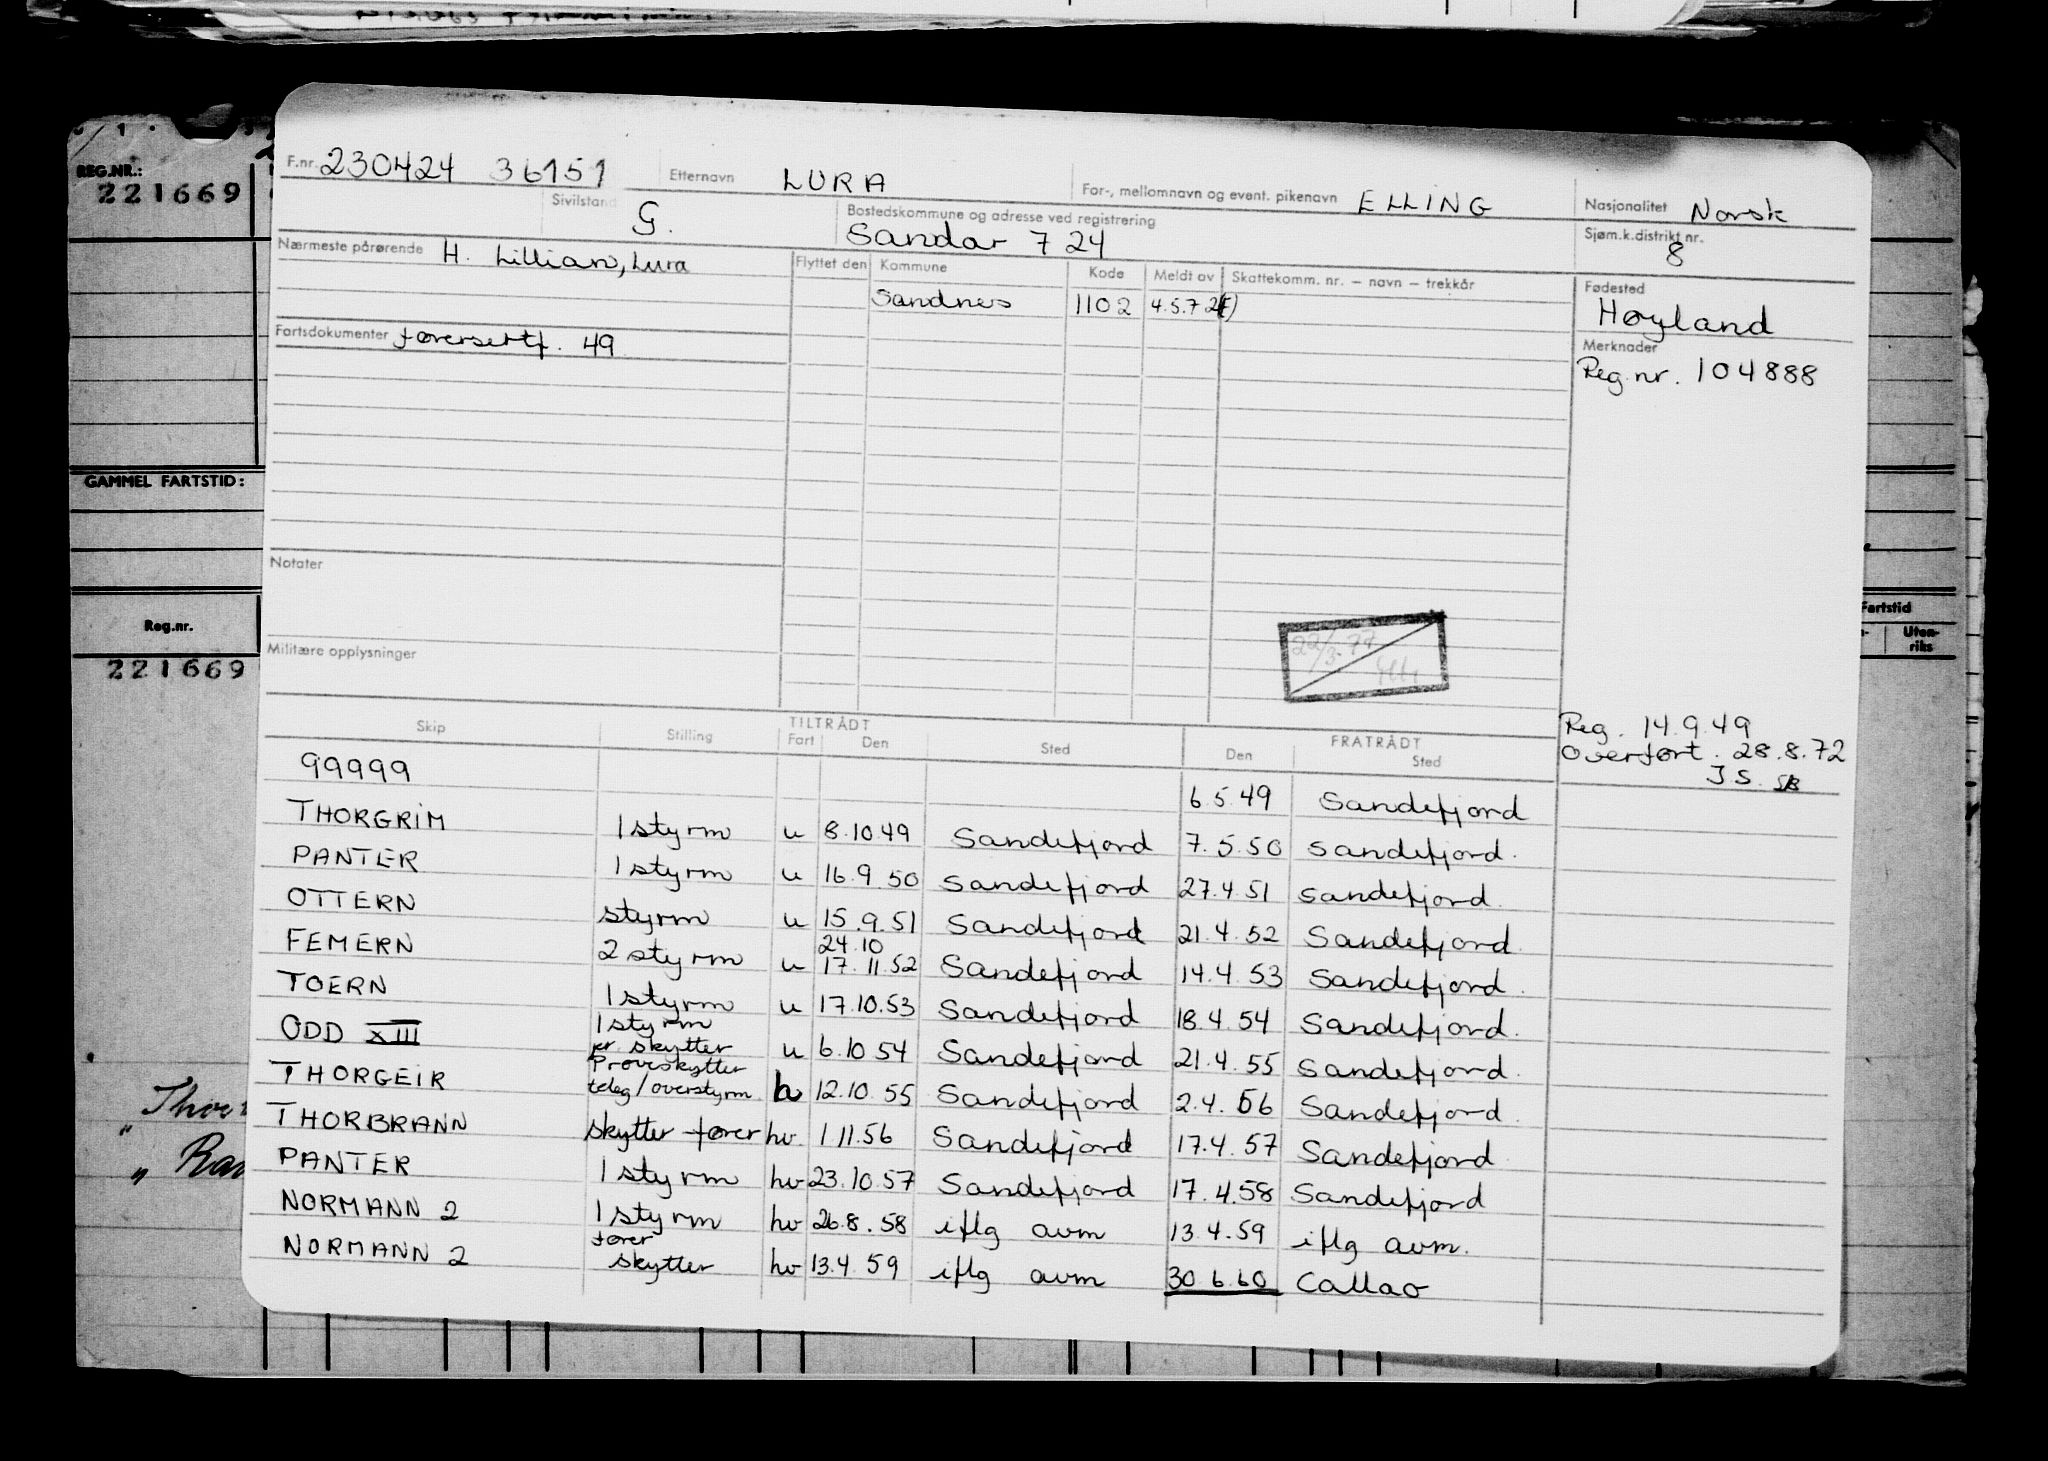 REG.NR.:
221669
GAMMEL FARTSTID:
Reg.nr.
221669
F.nr. 230424 36151 Etternavn LURA For-, mellomnavn og event. pikenavn ELLING Nasjonalitet Norsk
Sivilstand G. Bostedskommune og adresse ved registrering Sandar 724 Sjøm.k.distrikt nr. 8
Nærmeste pårørende H. Lillian, Lura Flyttet den Kommune Kode Meldt av Skattekomm. nr. – navn – trekkår Fødested
Sandnes 1102 4.5.72 Høyland
Fartsdokumenter førersertf. 49 Merknader
Reg.nr. 104888
Notater
22/3-77
Militære opplysninger
Reg. 14.9.49
Overført. 28.8.72
J S. SB
Skip Stilling TILTRÅDT Fart Den Sted FRATRÅDT Den Sted
99999 6.5.49 Sandefjord
THORGRIM 1 styrm u 8.10.49 Sandefjord 7.5.50 Sandefjord.
PANTER 1 styrm u 16.9.50 Sandefjord 27.4.51 Sandefjord.
OTTERN styrm u 15.9.51 Sandefjord 21.4.52 Sandefjord.
FEMERN 2 styrm u 24.10 17.11.52 Sandefjord 14.4.53 Sandefjord.
TOERN 1 styrm u 17.10.53 Sandefjord 18.4.54 Sandefjord.
ODD XIII 1 styrm pr. skytter u 6.10 54 Sandefjord 21.4.55 Sandefjord.
THORGEIR Prøveskytter teleg/overstyrm 12.10.55 Sandefjord 2.4.56 Sandefjord.
THORBRANN skytter fører hv 1 11.56 Sandefjord 17.4.57 Sandefjord
PANTER 1 styrm hv 23.10.57 Sandefjord 17.4.58 Sandefjord
NORMANN 2 1 styrm hv 26.8.58 iflg avm 13.4.59 iflg avm.
NORMANN 2 fører skytter hv 13.4.59 iflg avm 30 6.60 Callao
Fartstid
Uten-
riks